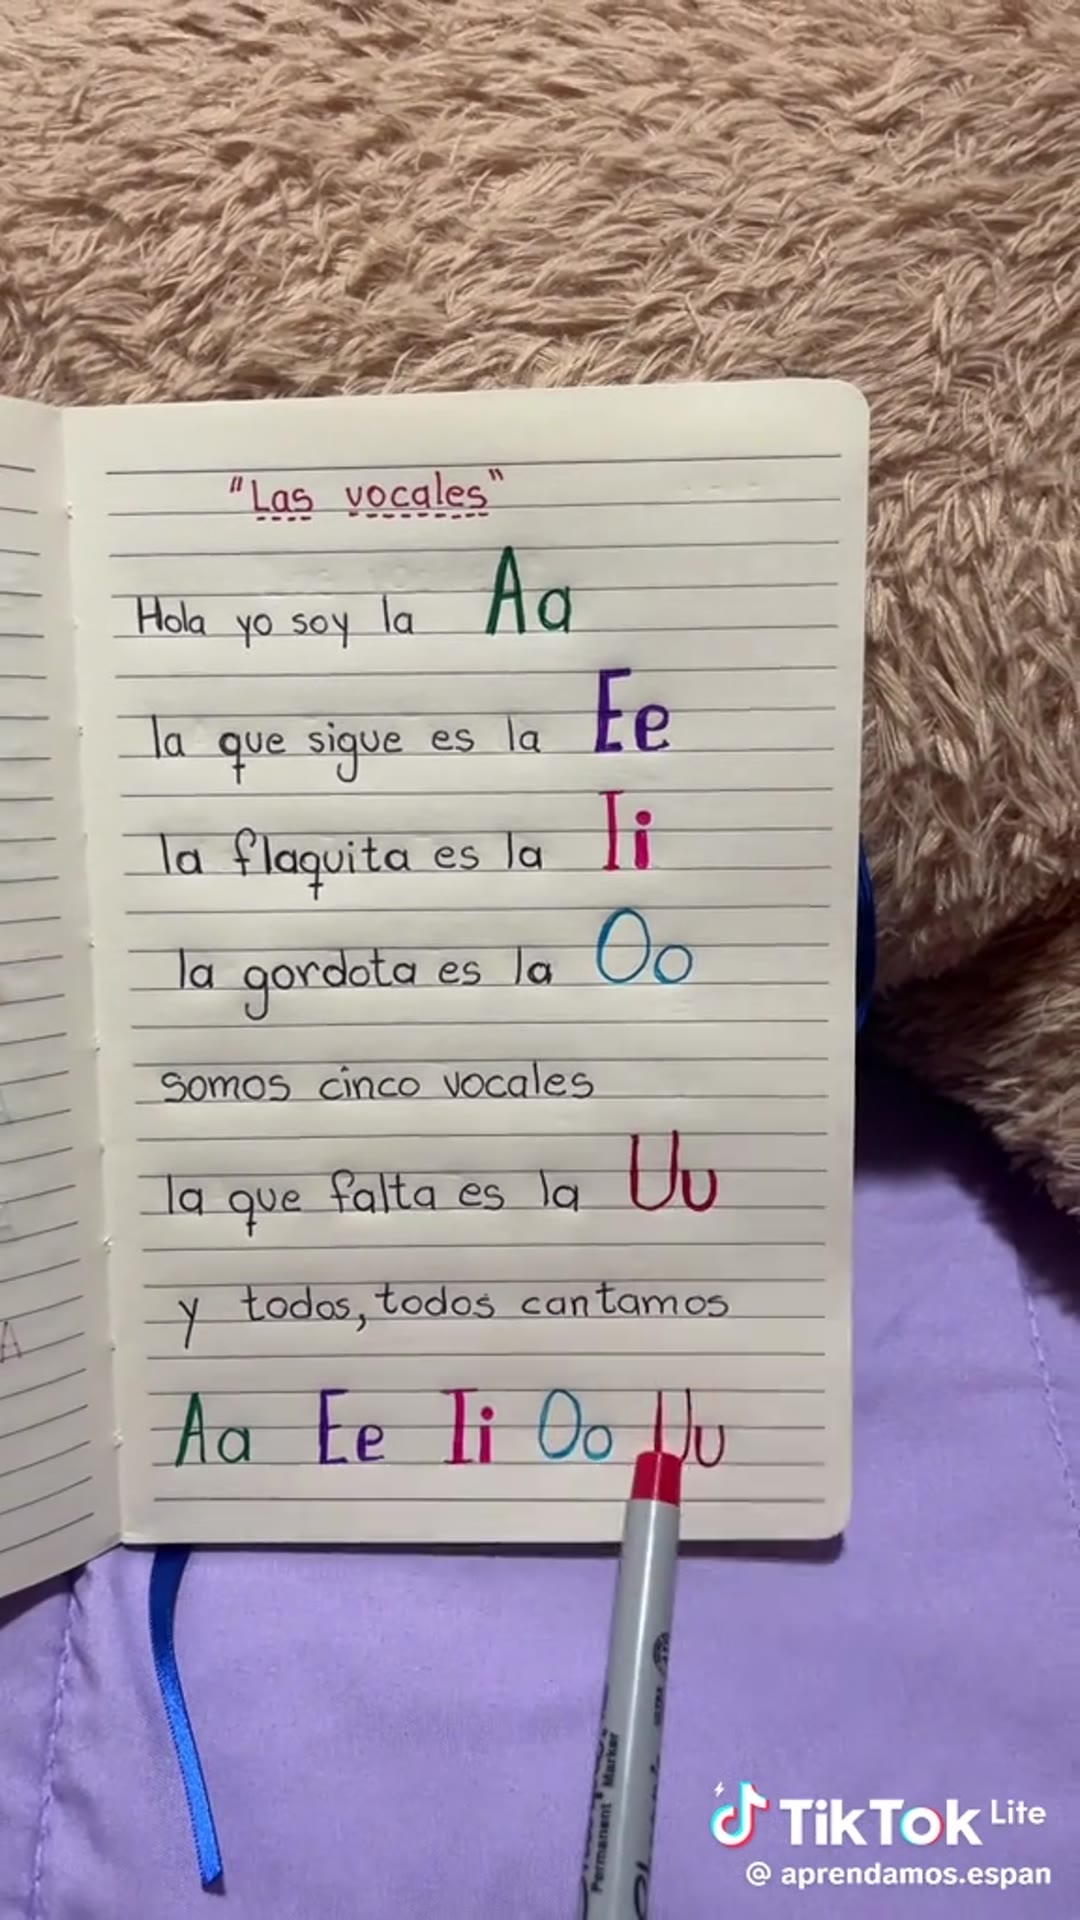 "Las vocales"
Hola yo soy la Aa
la que sigue es la Ee
la flaquita es la Ii
la gordota es la Oo
somos cinco vocales
la que falta es la Uu
y todos, todos cantamos
Aa Ee Ii Oo Uu
A
Permanent Marker
TikTok Lite
@ aprendamos.espan